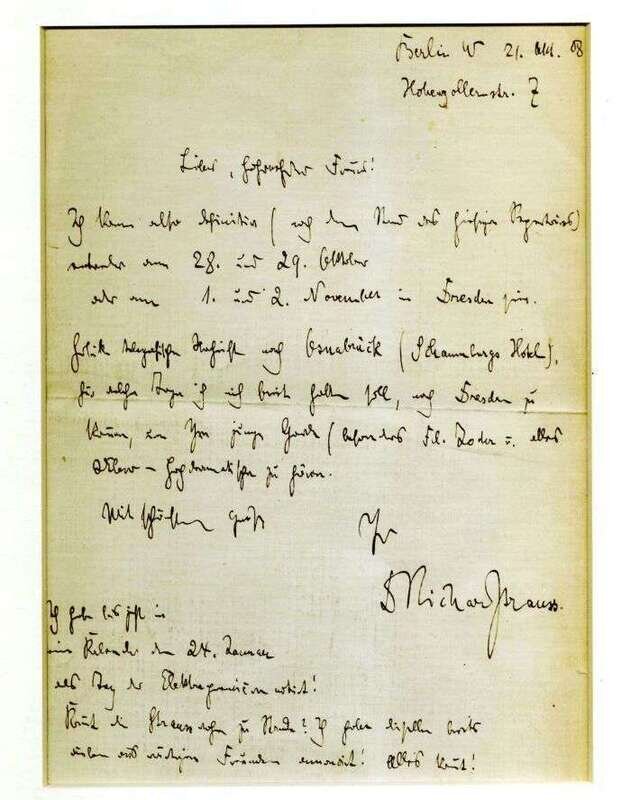 Berlin W 21. Okt. 08
Hohenzollernstr. 7
Lieber, hochverehrter Freund!
Ich kann also definitiv (nach dem Stand des hiesigen Repertoires)
entweder am 28. und 29. Oktober
oder am 1. und 2. November in Dresden sein.
telegrafische Nachricht nach Osnabrück (Schaumburgs Hotel),
für welche Tage ich mich bereit halten soll, nach Dresden zu
kommen, um Ihre junge Garde (besonders Frl. Zoder u. alles
hochdramatische zu hören.
Mit schönsten Gruß
Ihr
Dr Richard Strauss.
Ich habe bis jetzt in
meinem Kalender den 24. Januar
als Tag der Elektrapremiere notiert!
Kommt die Strausswoche zu Stande? Ich habe dieselbe bereits
Freunden annonciert! alles